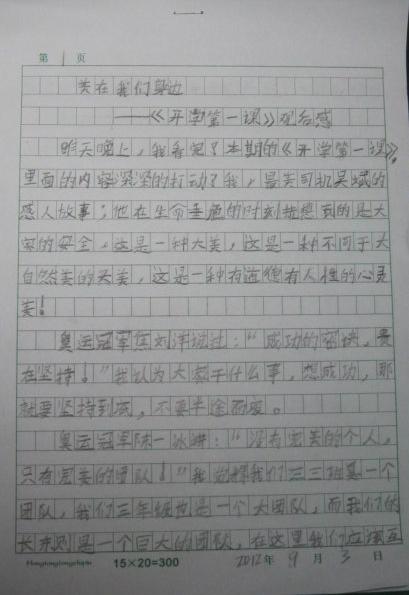 第 1 页
美在我们身边
——《开学第一课》观后感
昨天晚上,我看完了本期的《开学第一课》,
里面的内容深深的打动了我,最美司机吴斌的
感人故事;他在生命垂危的时刻想的是大
家的安全,这是一种大美,这是一种不同于大
自然美的美,这是一种有道德有人性的心灵
美!
奥运冠军焦刘洋说过:“成功的秘诀,贵
在坚持!”我认为大家干什么事,想成功,那
就要坚持到底,不要半途而废。
奥运冠军陈一冰讲:“没有完美的个人,
只有完美的团队!”我觉得我们三三班是一个
团队,我们三年级也是一个大团队,而我们的
长东则是一个巨大的团队,在这里我们应该互
15×20=300
2012年 9 月 3 日